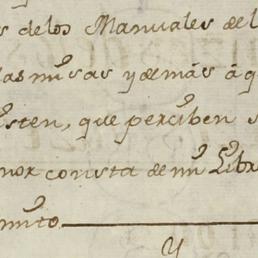 s de los Manuales de l
las misas y demás á q
isten, que perciben s
nor consta de mi Libr
mito
y